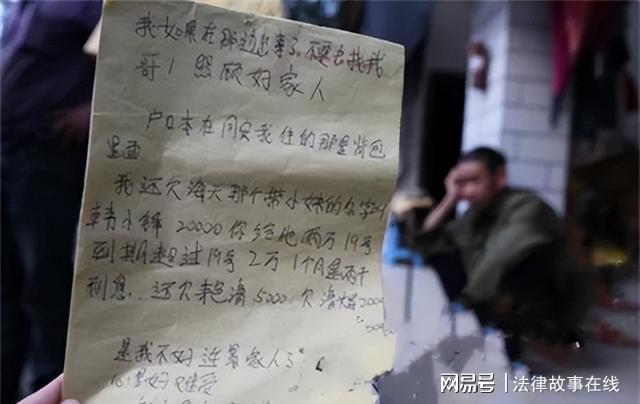 我如果在那边出事了,不要去找我
哥!照顾好家人
户口本在同安我住的那里背包
里面
我还欠海天那个带小妹的名字叫
韩小锋 20000 你给他两万 19号
到期超过19号 2万 1个月是两千
利息. 还欠 5000. 欠 2000
500
是我不好连累家人了
心里好难受
网易号 法律故事在线